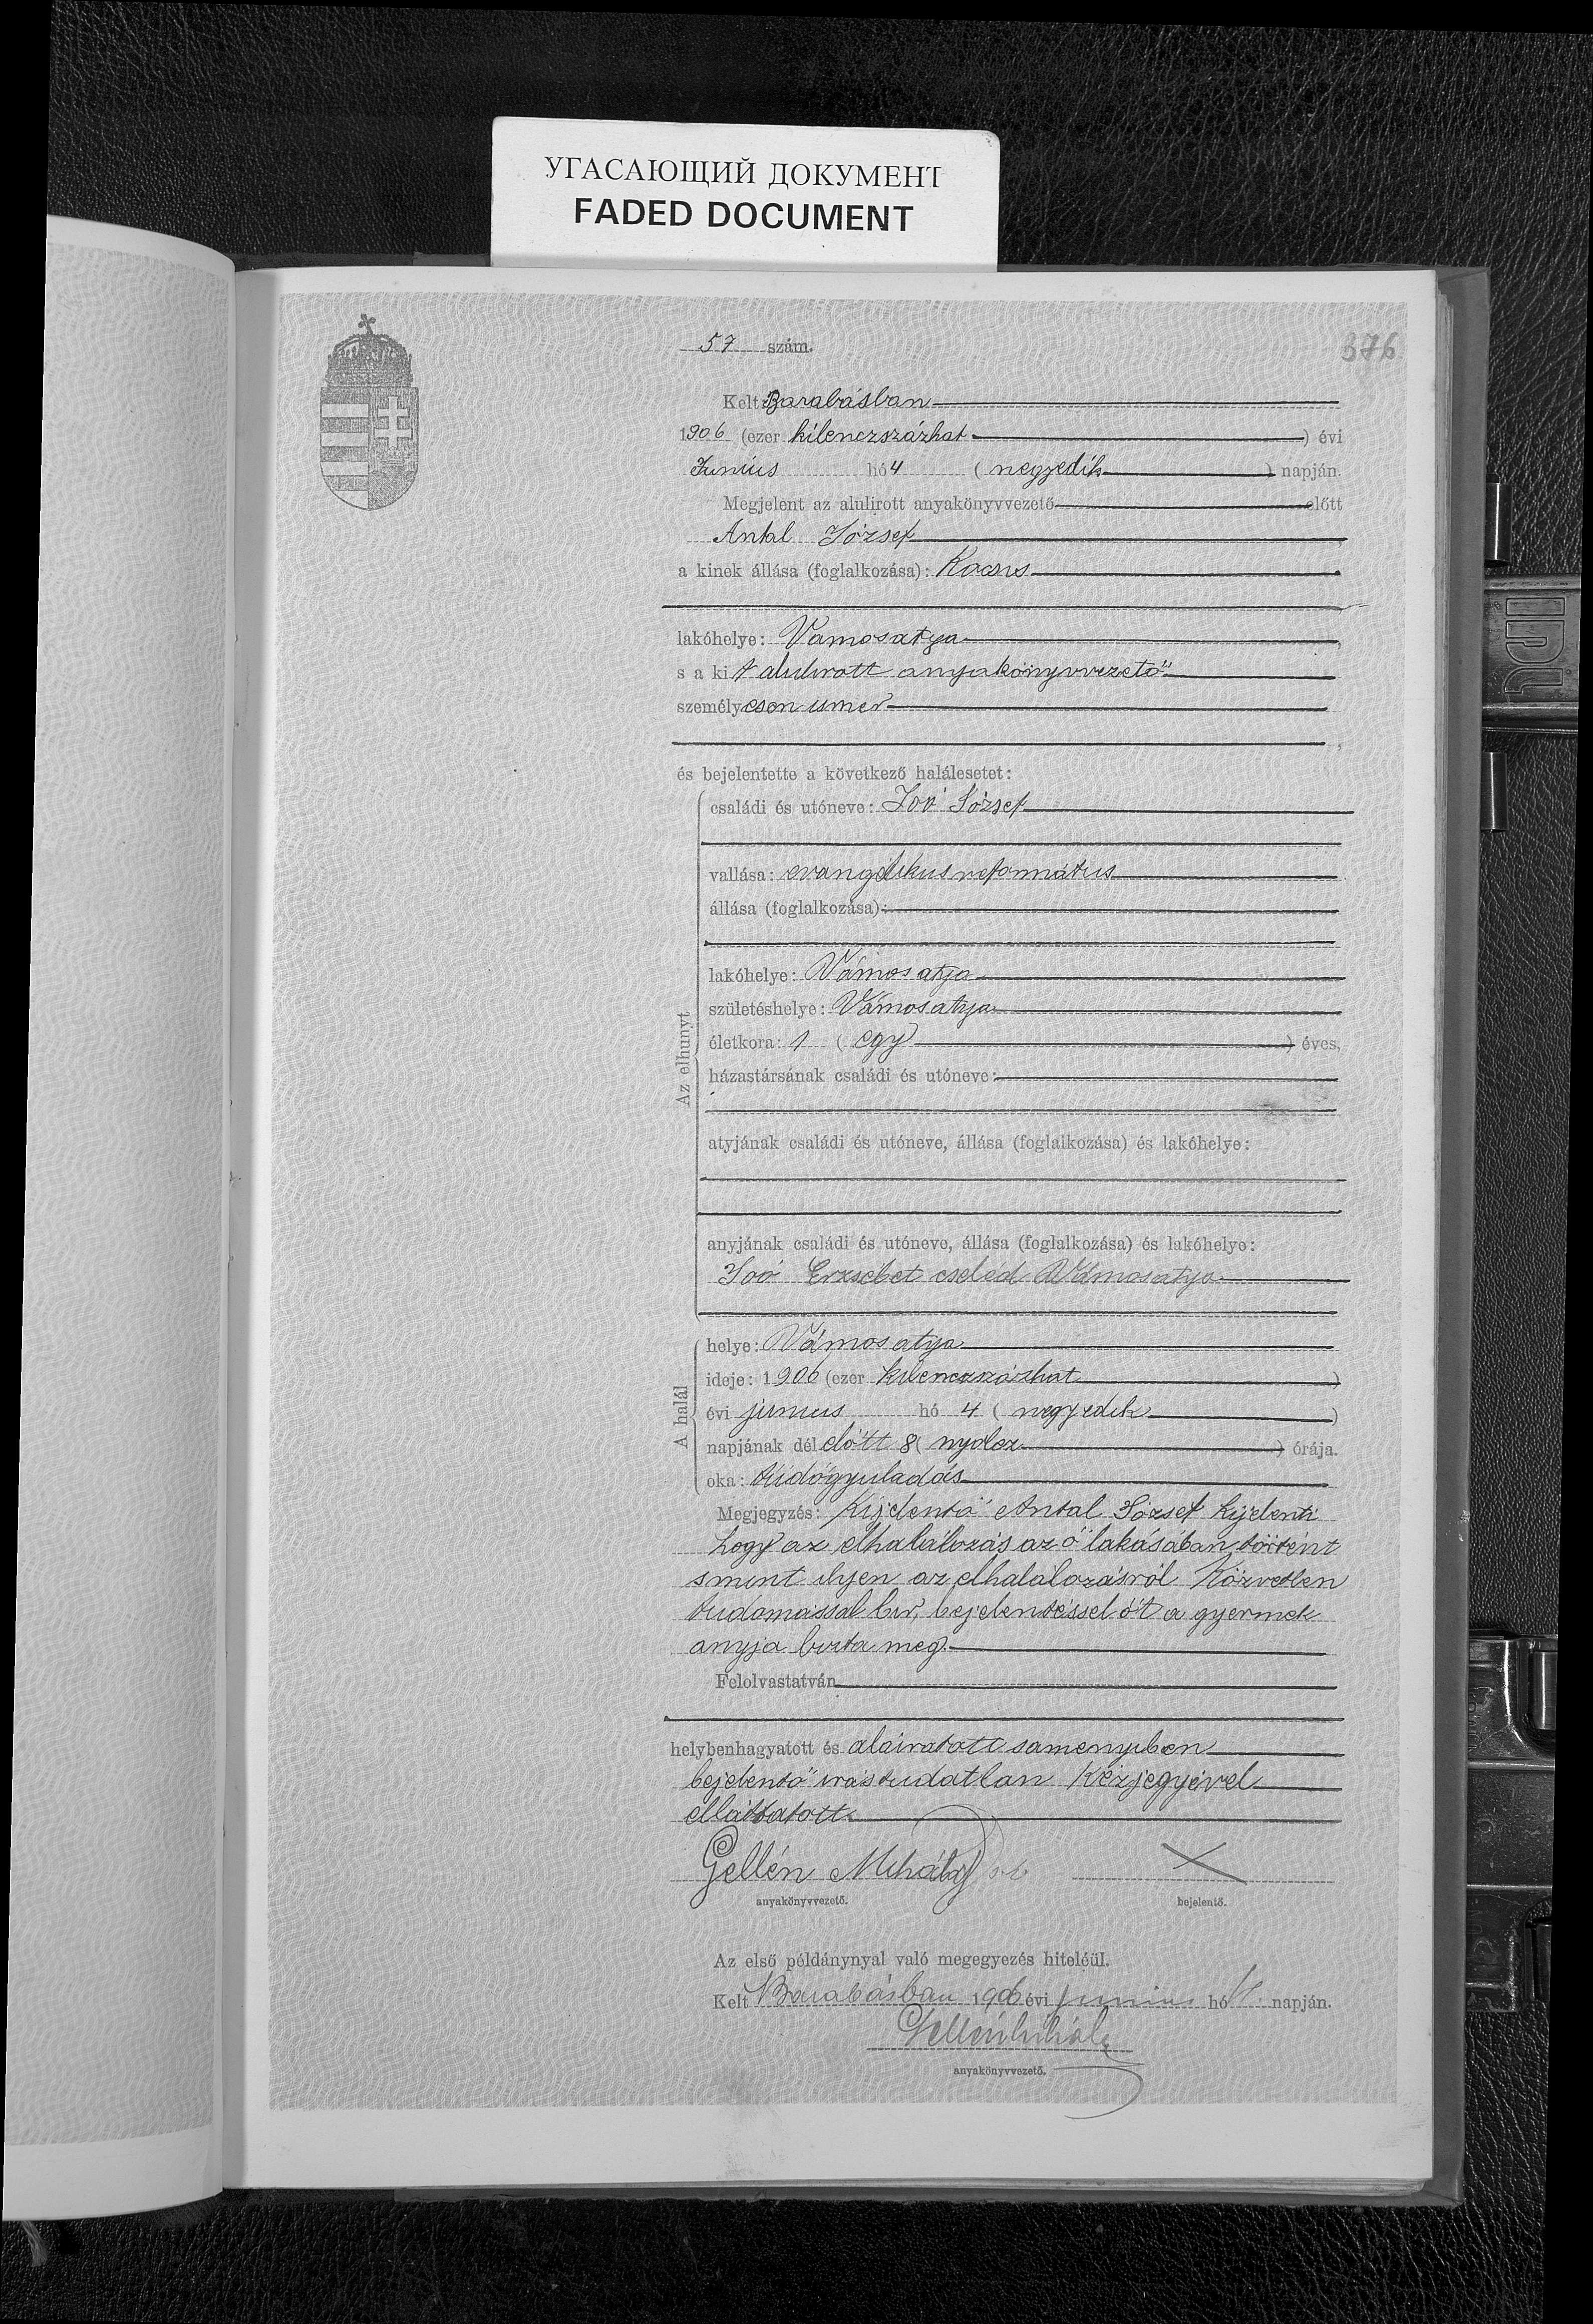 УГАСАЮЩИЙ ДОКУМЕНТ
FADED DOCUMENT
57 szám.
376
Kelt Barabásban
1906 (ezer kilenczszázhat ) évi
Junius hó 4 ( negyedik ) napján.
Megjelent az alulirott anyakönyvvezető előtt
Antal József
a kinek állása (foglalkozása): Kocsis
lakóhelye: Vamosatya
s a ki t alulirott anyakönyvvezető
személyesen ismer
és bejelentette a következő halálesetet:
Az elhunyt
családi és utóneve: József
vallása: evangélikus református
állása (foglalkozása):
lakóhelye: Vámosatya
születéshelye: Vámosatya
életkora: 1 ( egy ) éves,
házastársának családi és utóneve:
atyjának családi és utóneve, állása (foglalkozása) és lakóhelye:
anyjának családi és utóneve, állása (foglalkozása) és lakóhelye:
Erzsébet cseléd Vámosatya
A halál
helye: Vámosatya
ideje: 1906 (ezer kilenczszázhat )
évi junius hó 4 ( negyedik )
napjának dél előtt 8 ( nyolcz ) órája.
oka: tüdőgyuladás
Megjegyzés: Kijelentő Antal József kijelenti
hogy az elhalálozás az ő lakásában történt
s mint ilyen az elhalálozásról Közvetlen
tudomással bir, bejelentéssel őt a gyermek
anyja bizta meg.
Felolvastatván
helybenhagyatott és aláiratott samenyiben
bejelentő irástudatlan Kézjegyével
elláttatott.
Gellén Mihály
anyakönyvvezető.
bejelentő.
Az első példánynyal való megegyezés hiteléül.
Kelt Barabásban 1906 évi junius hó 4. napján.
Gellén Mihály
anyakönyvvezető.